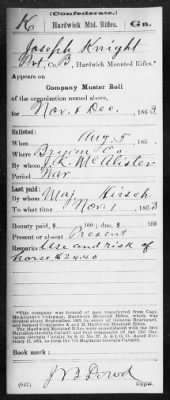 (Confederate.)
K Hardwick Mtd. Rifles. Ga.
Joseph Knight
Pvt, Co. B, Hardwick Mounted Rifles.*
Appears on
Company Muster Roll
of the organization named above,
for Nov. & Dec., 1863.
Enlisted:
When Aug 5, 186
Where Bryan Co.
By whom J. K. McAlister
Period War
Last paid:
By whom Maj. Hirsch
To what time Nov. 1, 1863
Bounty paid $ 100; due $ 100
Present or absent Present
Remarks: Use and risk of
horse $24.40
*This company was formed of men transferred from Capt.
McAllister's Company, Hardwick Mounted Rifles, which was divided
Book mark:
(642) J B Dowd
Copyist.